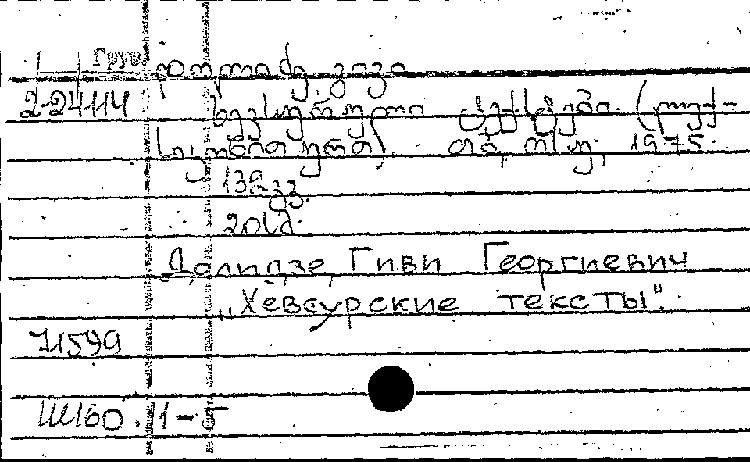 Груз
დოლიძე, გივი
2-24114 ხევსურული ტექსტები. (ლექ-
სიკონითურთ). თბ, თსუ, 1975.
139გვ.
20სმ.
Долидзе, Гиви Георгиевич
„Хевсурские тексты".
71599
Ш160.11-5